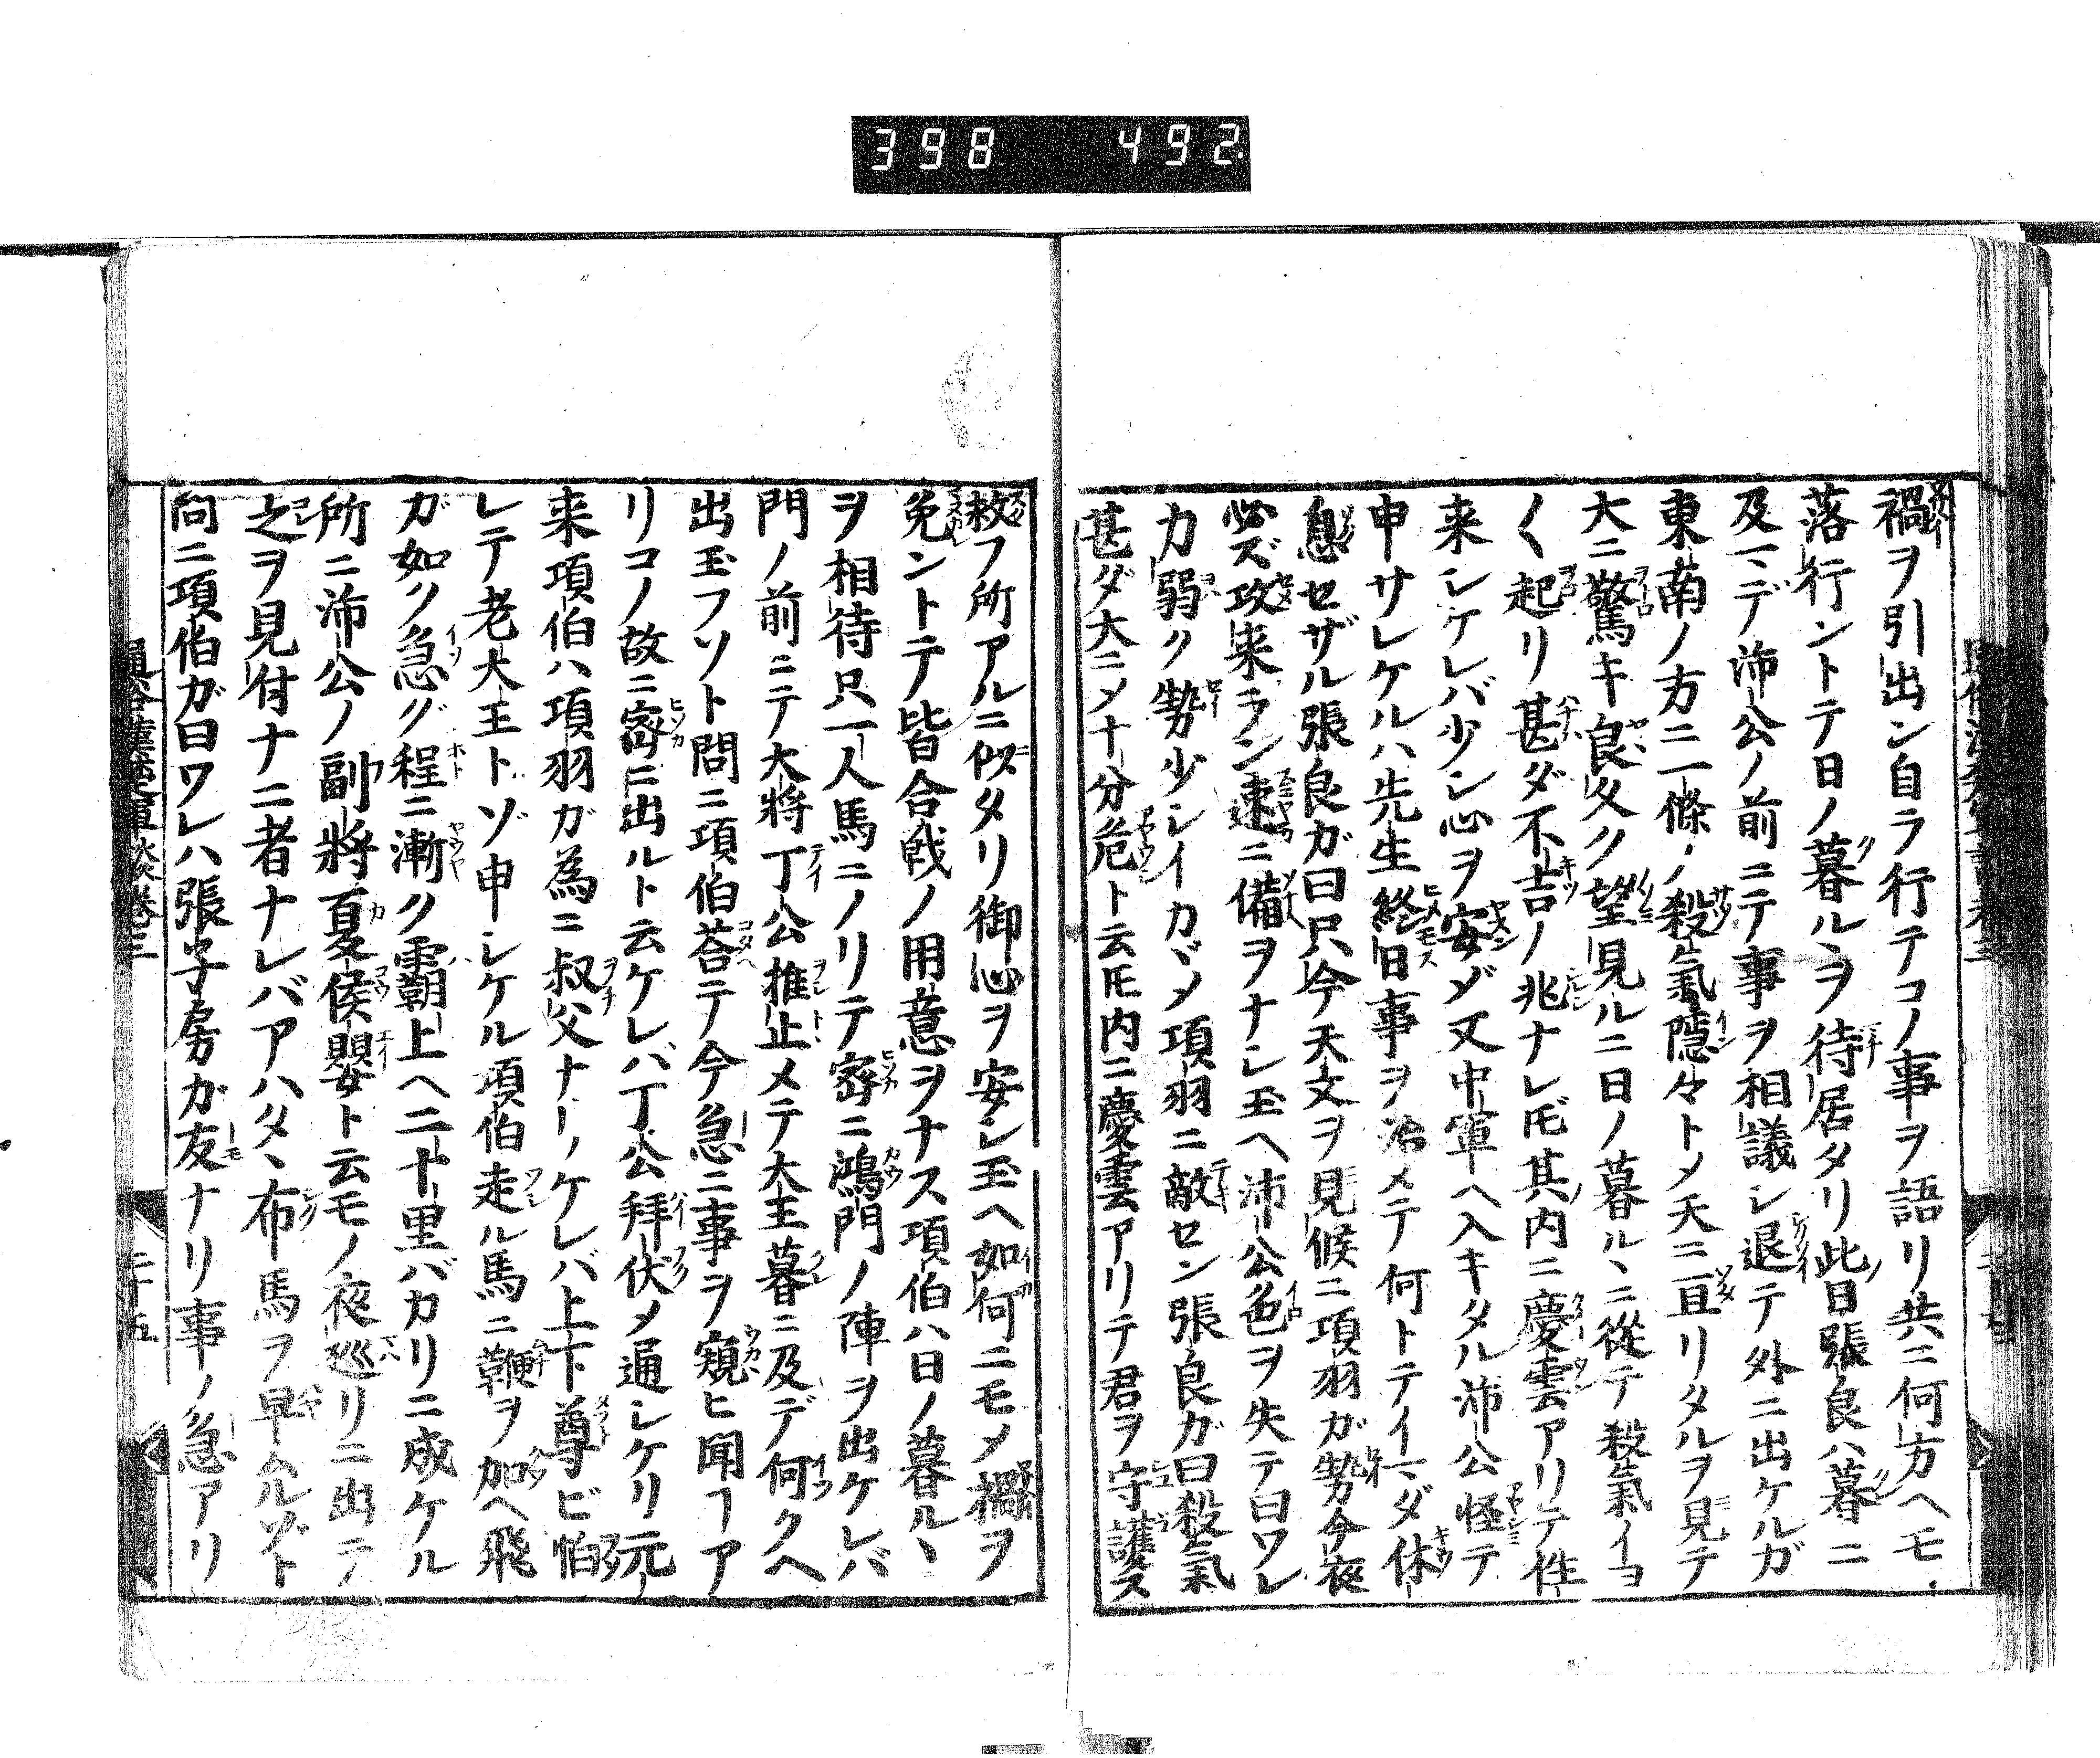 398 492
禍ヲ引出ン自ラ行テコノ事ヲ語リ共ニ何方ヘモ
落行ントテ日ノ暮ルヽヲ待居タリ此日張良ハ暮ニ
及マデ沛公ノ前ニテ事ヲ相議シ退テ外ニ出ケルガ
東南ノ方ニ一條ノ殺氣隱々トメ天ニ亘リタルヲ見テ
大ニ驚キ良久ク望見ルニ日ノ暮ルヽニ從テ殺氣イヨ
〱起リ甚ダ不吉ノ兆ナレ𪜈其内ニ慶雲アリテ性
来シケレバ少シ心ヲ安ジ又中軍ヘ入キタル沛公怪テ
申サレケルハ先生終日事ヲ治メテ何トテイマダ休
息セザル張良ガ曰只今天文ヲ見候ニ項羽ガ勢今夜
必ズ攻来ラン速ニ備ヲナシ玉ヘ沛公色ヲ失テ曰ワレ
力弱ク勢少シイカヾメ項羽ニ敵セン張良ガ曰殺氣
甚ダ大ニメ十分危ト云𪜈内ニ慶雲アリテ君ヲ守護ス
救フ所アルニ似タリ御心ヲ安シ玉ヘ如何ニモメ禍ヲ
免ントテ皆合戦ノ用意ヲナス項伯ハ日ノ暮ルヽ
ヲ相待只一人馬ニノリテ密ニ鴻門ノ陣ヲ出ケレバ
門ノ前ニテ大將丁公推止メテ大王暮ニ及デ何クヘ
出玉フソト問ニ項伯荅テ今急ニ事ヲ窺ヒ聞ーア
リコノ故ニ密ニ出ルト云ケレバ丁公拜伏メ通シケリ元
来項伯ハ項羽ガ為ニ叔父ナリケレバ上下尊ビ怕
レテ老大王トゾ申シケル項伯走ル馬ニ鞭ヲ加ヘ飛
ガ如ク急グ程ニ漸ク霸上ヘ二十里バカリニ成ケル
所ニ沛公ノ副將夏侯嬰ト云モノ夜巡リニ出テ
之ヲ見付ナニ者ナレバアハタヽ布馬ヲ早ムルゾト
問ニ項伯ガ曰ワレハ張子房ガ友ナリ事ノ急アリ
通俗漢楚軍談卷三
二十五